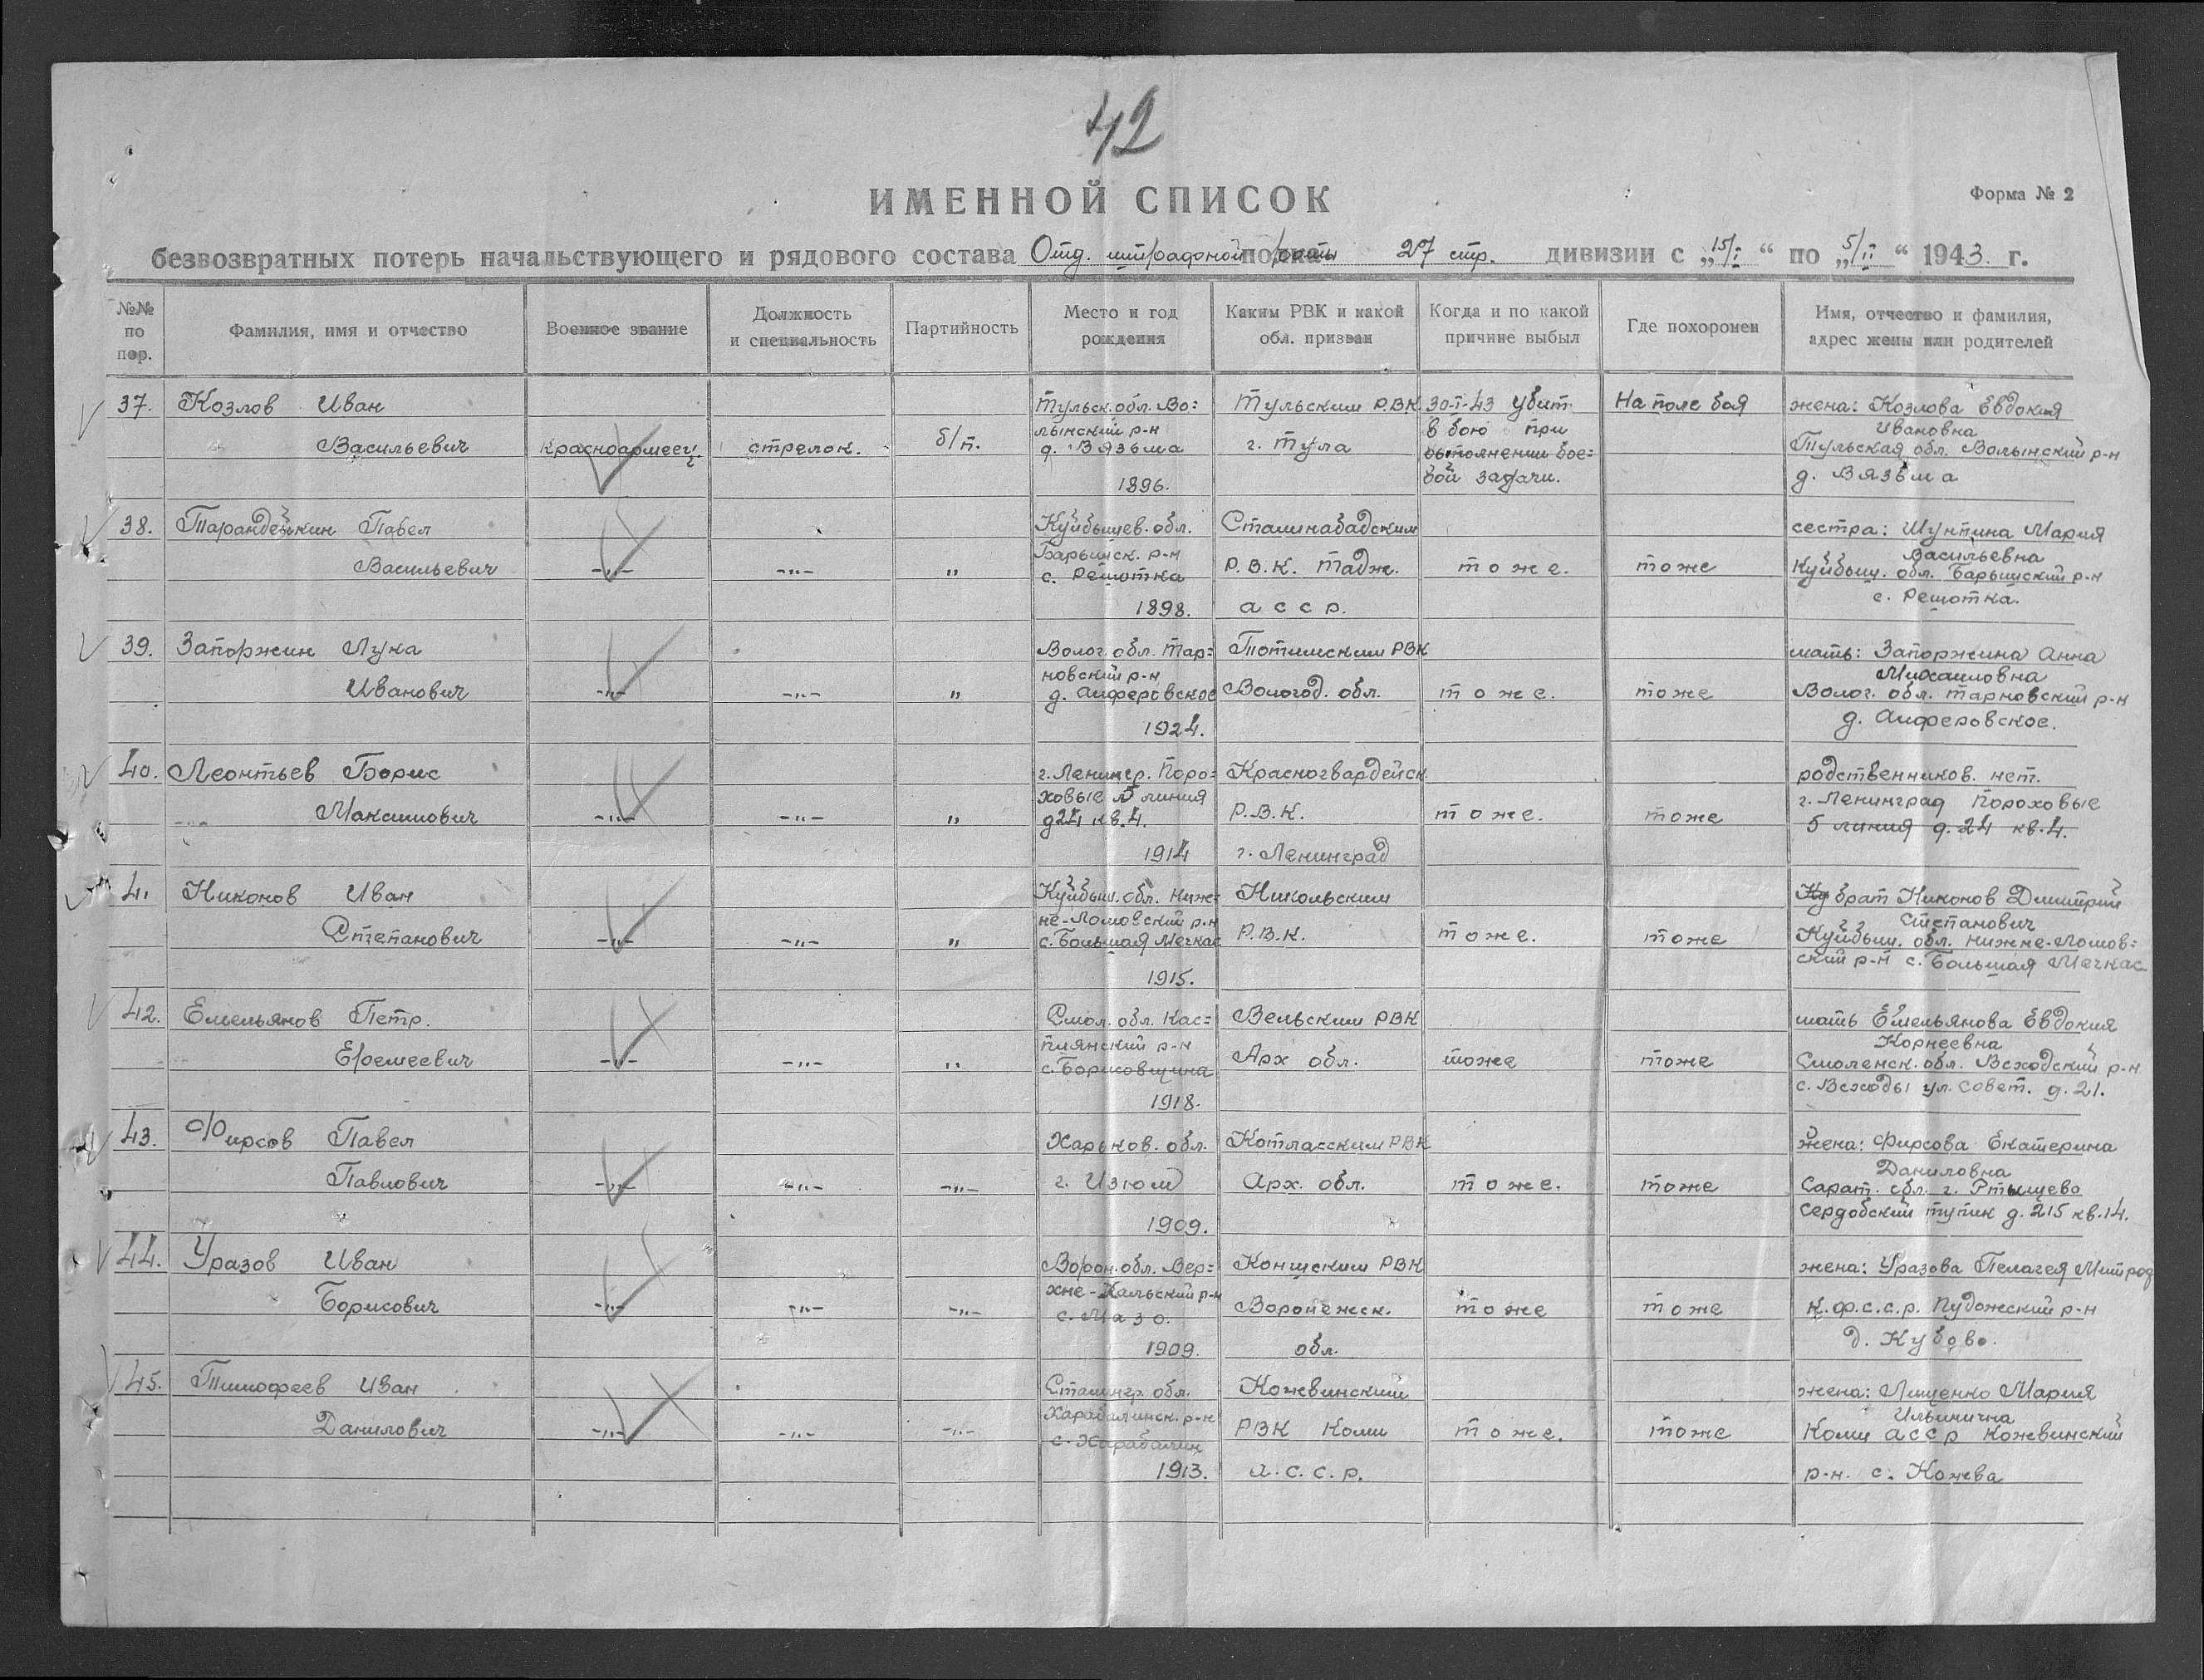 42
ИМЕННОЙ СПИСОК
Форма № 2
безвозвратных потерь начальствующего и рядового состава Отд. штрафной роты 27 стр. дивизии с „15/I“ по „5/II“ 1943 г.
№№ по пор.
Фамилия, имя и отчество
Военное звание
Должность и специальность
Партийность
Место и год рождения
Каким РВК и какой обл. призван
Когда и по какой причине выбыл
Где похоронен
Имя, отчество и фамилия, адрес жены или родителей
37. Козлов Иван
Васильевич
красноармеец
стрелок.
б/п.
Тульск. обл. Во=
лынский р-н
д. Вязьма
1896.
Тульским Р.В.К.
г. Тула
30-I-43 убит
в бою при
выполнении бое=
вой задачи.
На поле боя
жена: Козлова Евдокия
Ивановна
Тульская обл. Волынский р-н
д. Вязьма
38. Тарандейкин Павел
Васильевич
-"-
-"-
"
Куйбышев. обл.
Барышск. р-н
с. Решотка
1898.
Сталинабадским
Р.В.К. Тадж.
а с с р.
тоже.
тоже
сестра: Шунтина Мария
Васильевна
Куйбыш. обл. Барышский р-н
с. Решотка.
39. Запоржин Лука
Иванович
-"-
-"-
"
Волог. обл. Тар=
новский р-н
д. Алферовское
1924.
Тотемским РВК
Вологод. обл.
тоже.
тоже
мать: Запоржина Анна
Михаиловна
Волог. обл. Тарновский р-н
д. Алферовское.
40. Леонтьев Борис
Максимович
-"-
-"-
"
г. Ленингр. Поро=
ховые 5 линия
д 24 кв. 4.
1914
Красногвардейск.
Р.В.К.
г. Ленинград
тоже.
тоже
родственников. нет.
г. Ленинград Пороховые
5 линия д. 24 кв. 4.
41 Никонов Иван
Степанович
-"-
-"-
"
Куйбыш. обл. Ниж=
не-Ломовский р-н
с. Большая Мечкас
1915.
Никольским
Р.В.К.
тоже.
тоже
Ку брат Никонов Димитрий
Степанович
Куйбыш. обл. Нижне-Ломов=
ский р-н с. Большая Мечкас
42. Емельянов Петр.
Еремеевич
-"-
-"-
"
Смол. обл. Кас=
плянский р-н
с. Борисовщина
1918.
Вельским РВК
Арх обл.
тоже
тоже
мать Емельянова Евдокия
Корнеевна
Смоленск. обл. Всходский р-н
с. Всходы ул. Совет. д. 21.
43. Фирсов Павел
Павлович
-"-
-"-
-"-
Харьков. обл.
г. Изюм
1909.
Котласским РВК
Арх. обл.
тоже.
тоже
жена: Фирсова Екатерина
Даниловна
Сарат. обл. г. Ртищево
Сердобский тупик д. 215 кв. 14.
44. Уразов Иван
Борисович
-"-
-"-
-"-
Ворон. обл. Вер=
хне-Хальский р-н
с. Мазо.
1909.
РВК
Воронежск.
обл.
тоже
тоже
жена: Уразова Пелагея Митрод
К.ф.с.с.р. Пудожский р-н
д. Кубово.
45. Тимофеев Иван
Данилович
-"-
-"-
-"-
Сталингр. обл.
Харабалинск. р-н
с. Харабалин
1913.
Кожвинский
РВК Коми
а. с. с. р.
тоже.
тоже
жена: Лищенко Мария
Ильинична
Коми асср Кожвинский
р-н. с. Кожва